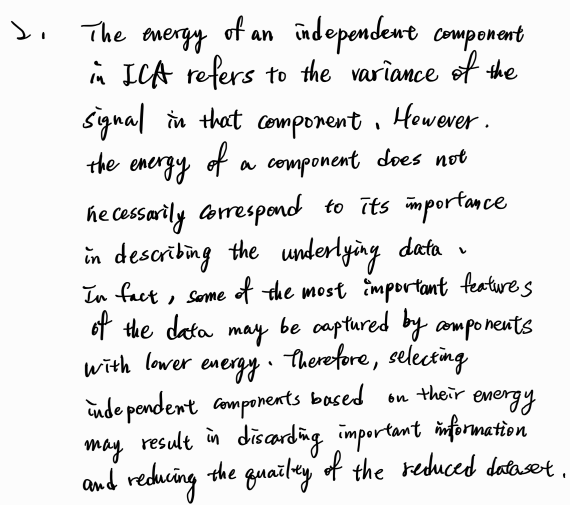 2. The energy of an independent component
in ICA refers to the variance of the
signal in that component. However.
the energy of a component does not
necessarily correspond to its importance
in describing the underlying data.
In fact, some of the most important features
of the data may be captured by components
with lower energy. Therefore, selecting
independent components based on their energy
may result in discarding important information
and reducing the quailty of the reduced dataset.